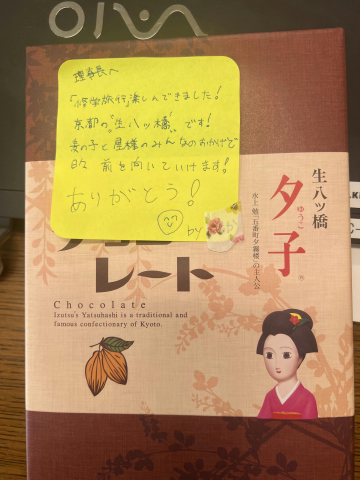 VAIO
理事長へ
「修学旅行」楽しんできました！
京都の"生八ッ橋"です！
妻の子と屋様のみんなのおかげで
日々 前を向いていけます！
ありがとう！
by
生八ッ橋
夕子
ゆうこ
水上勉「五番町夕霧楼」の主人公
レート
Chocolate
Izutsu's Yatsuhashi is a traditional and
famous confectionary of Kyoto.